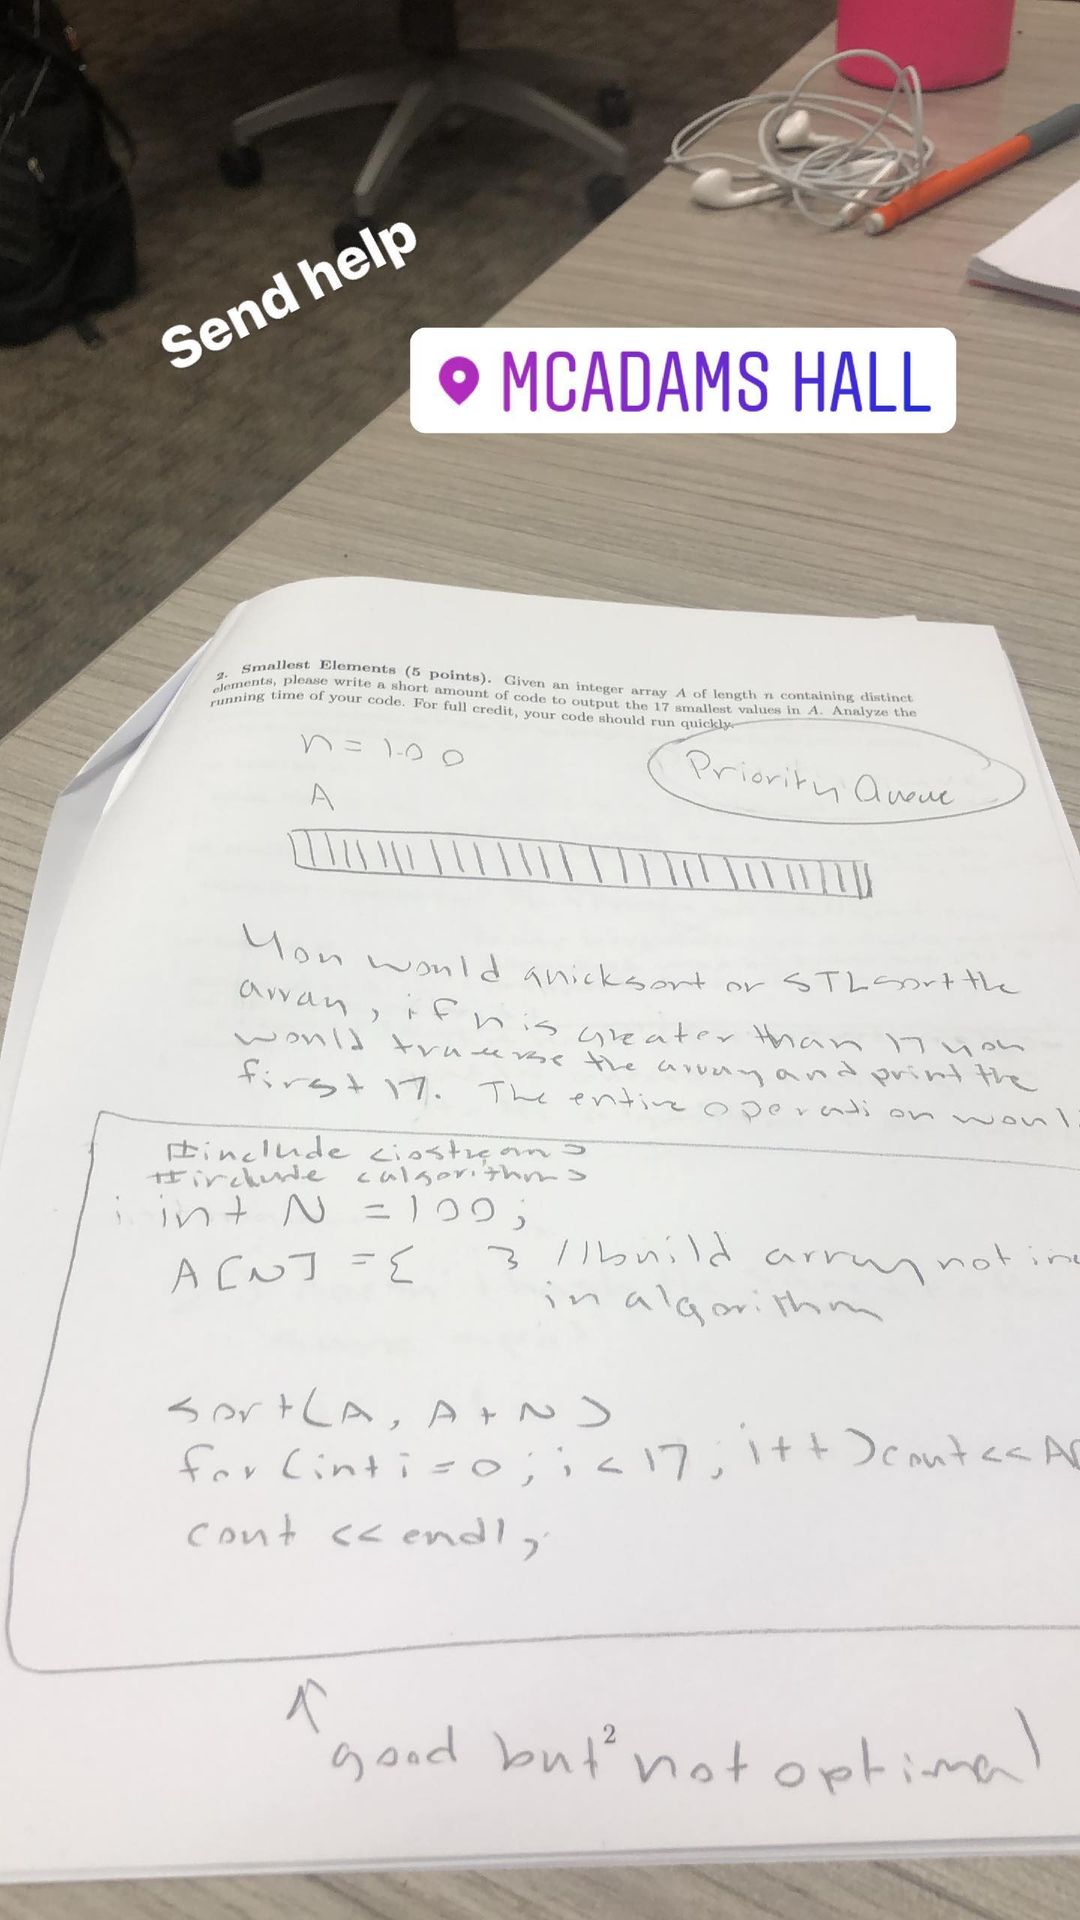 Send help
MCADAMS HALL
2. Smallest Elements (5 points). Given an integer array A of length n containing distinct
elements, please write a short amount of code to output the 17 smallest values in A. Analyze the
running time of your code. For full credit, your code should run quickly.
n = 100
Priority Queue
A
You would quicksort or STL sort the
array, if n is greater than 17 you
would traverse the array and print the
first 17. The entire operation would
#include <iostream>
#include <algorithm>
int N = 100;
A[N] = { } //build array not
in algorithm
sort(A, A + N)
for (int i = 0; i < 17; i++) cout << A[
cout << endl;
good but not optimal
2